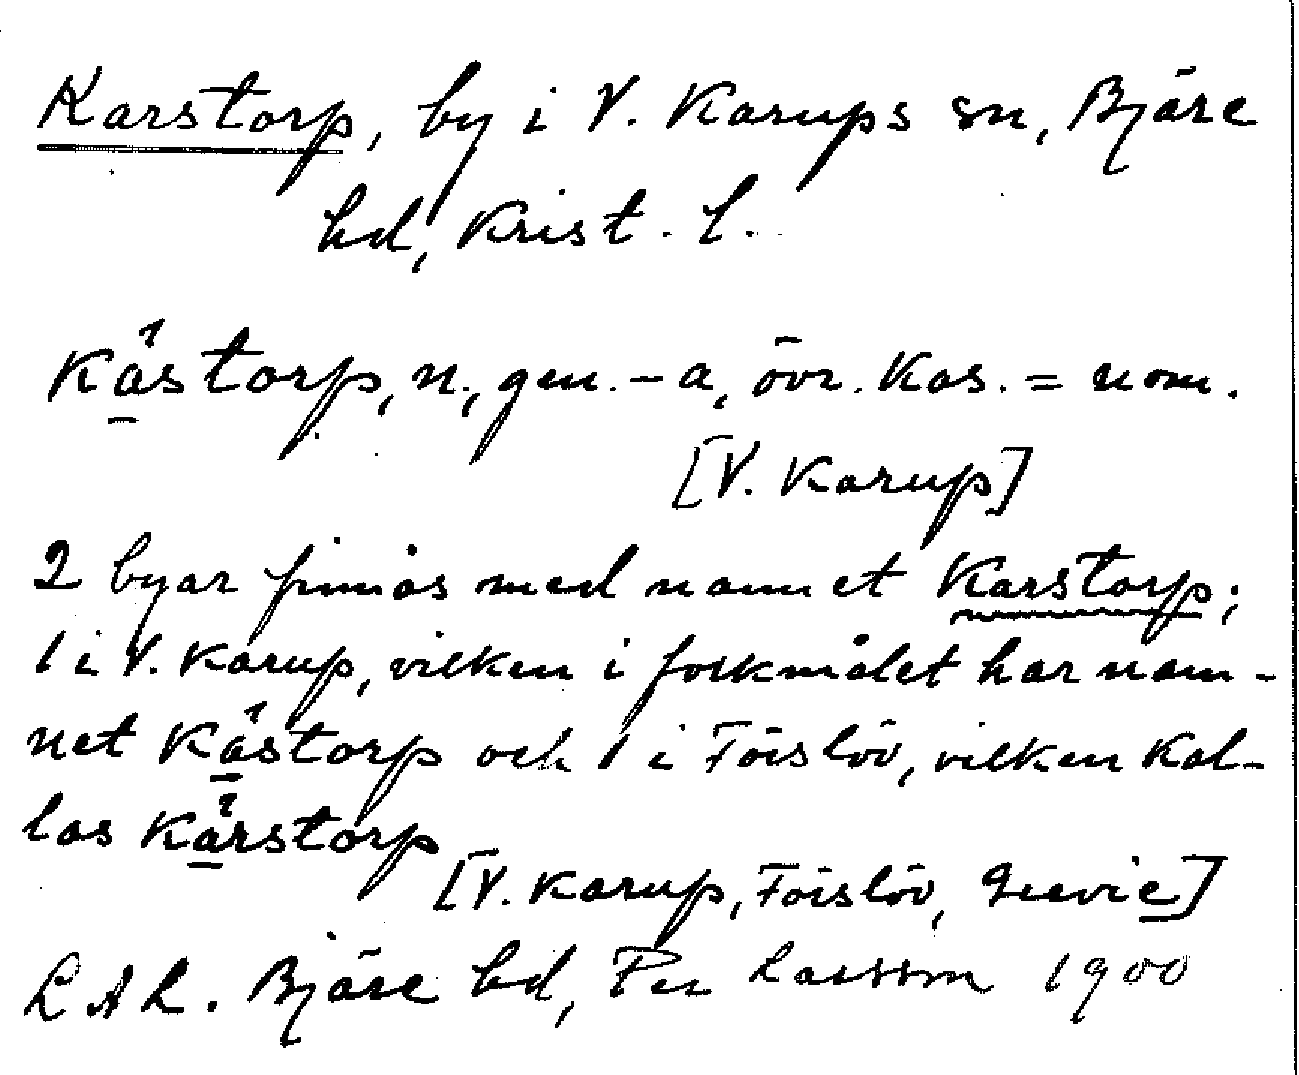 Karstorp, by i V. Karups sn, Bjäre
hd, Krist. l.
Kåstorp, n., gen. -a, övr. kas. = nom.
[V. Karup]
2 byar finnas med namnet Karstorp;
1 i V. Karup, vilken i folkmålet har nam-
net Kåstorp och 1 i Förslöv, vilken kal-
las Kårstorp
[V. Karup, Förslöv, Grevie]
LAL. Bjäre hd, Per Larsson 1900